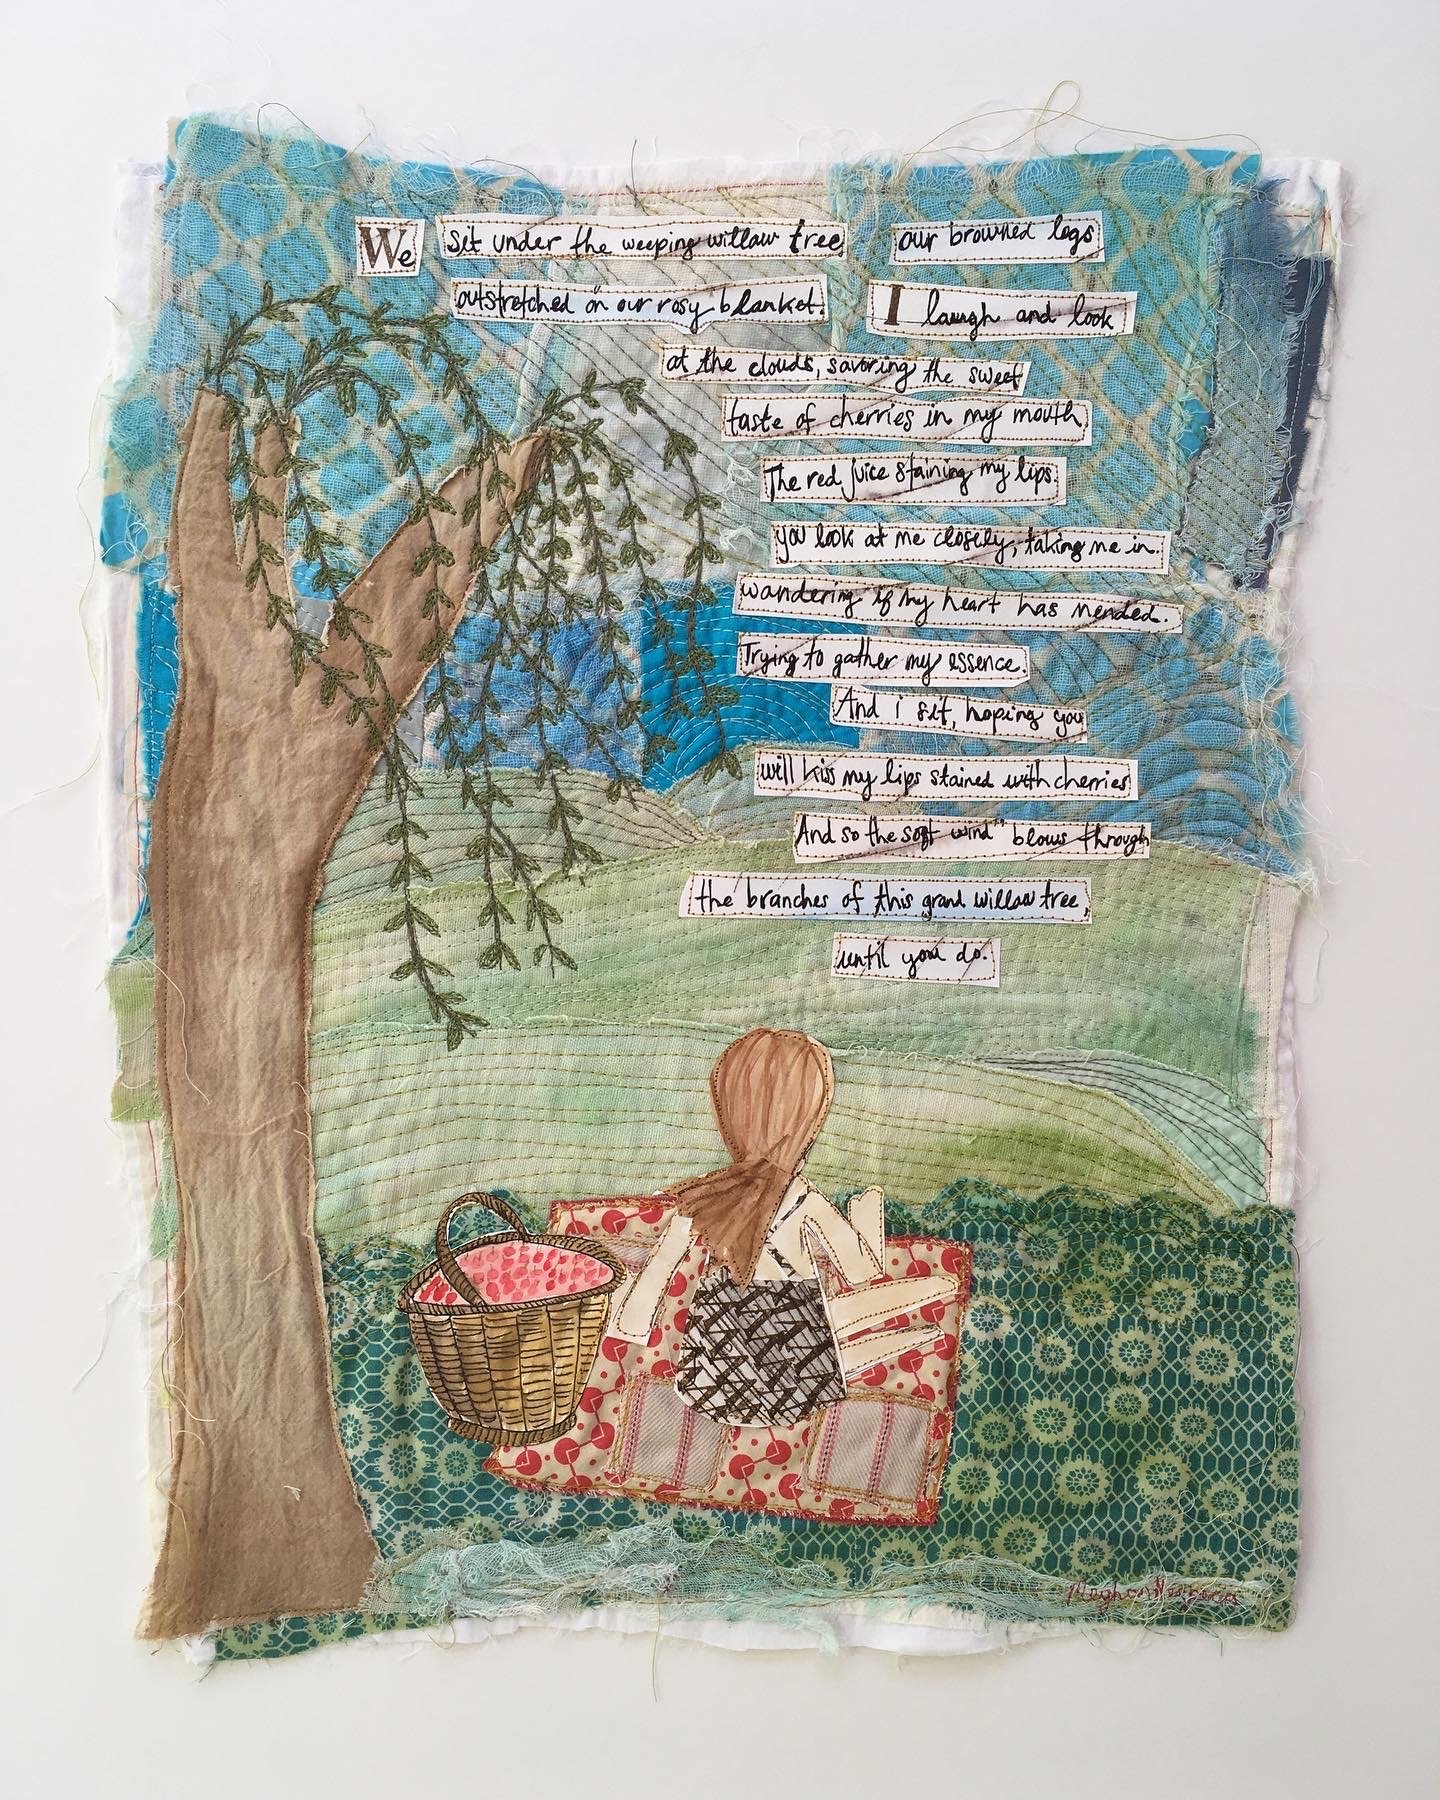 We sit under the weeping willow tree our browned legs
outstretched on our rosy blanket. I laugh and look
at the clouds, savoring the sweet
taste of cherries in my mouth
The red juice staining my lips.
you look at me closely, taking me in.
wandering if my heart has mended.
Trying to gather my essence.
And i sit, hoping you
will kiss my lips stained with cherries
And so the soft wind blows through
the branches of this grand willow tree,
until you do.
Meghan